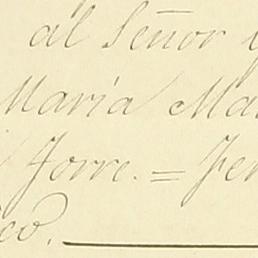 al Señor
Maria Ma
Torre. = Fer
co.